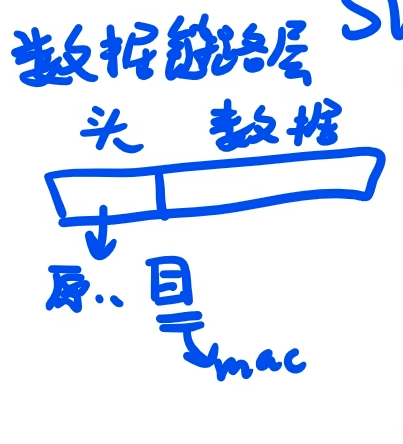 数据链路层
头 数据
原.. 目
mac